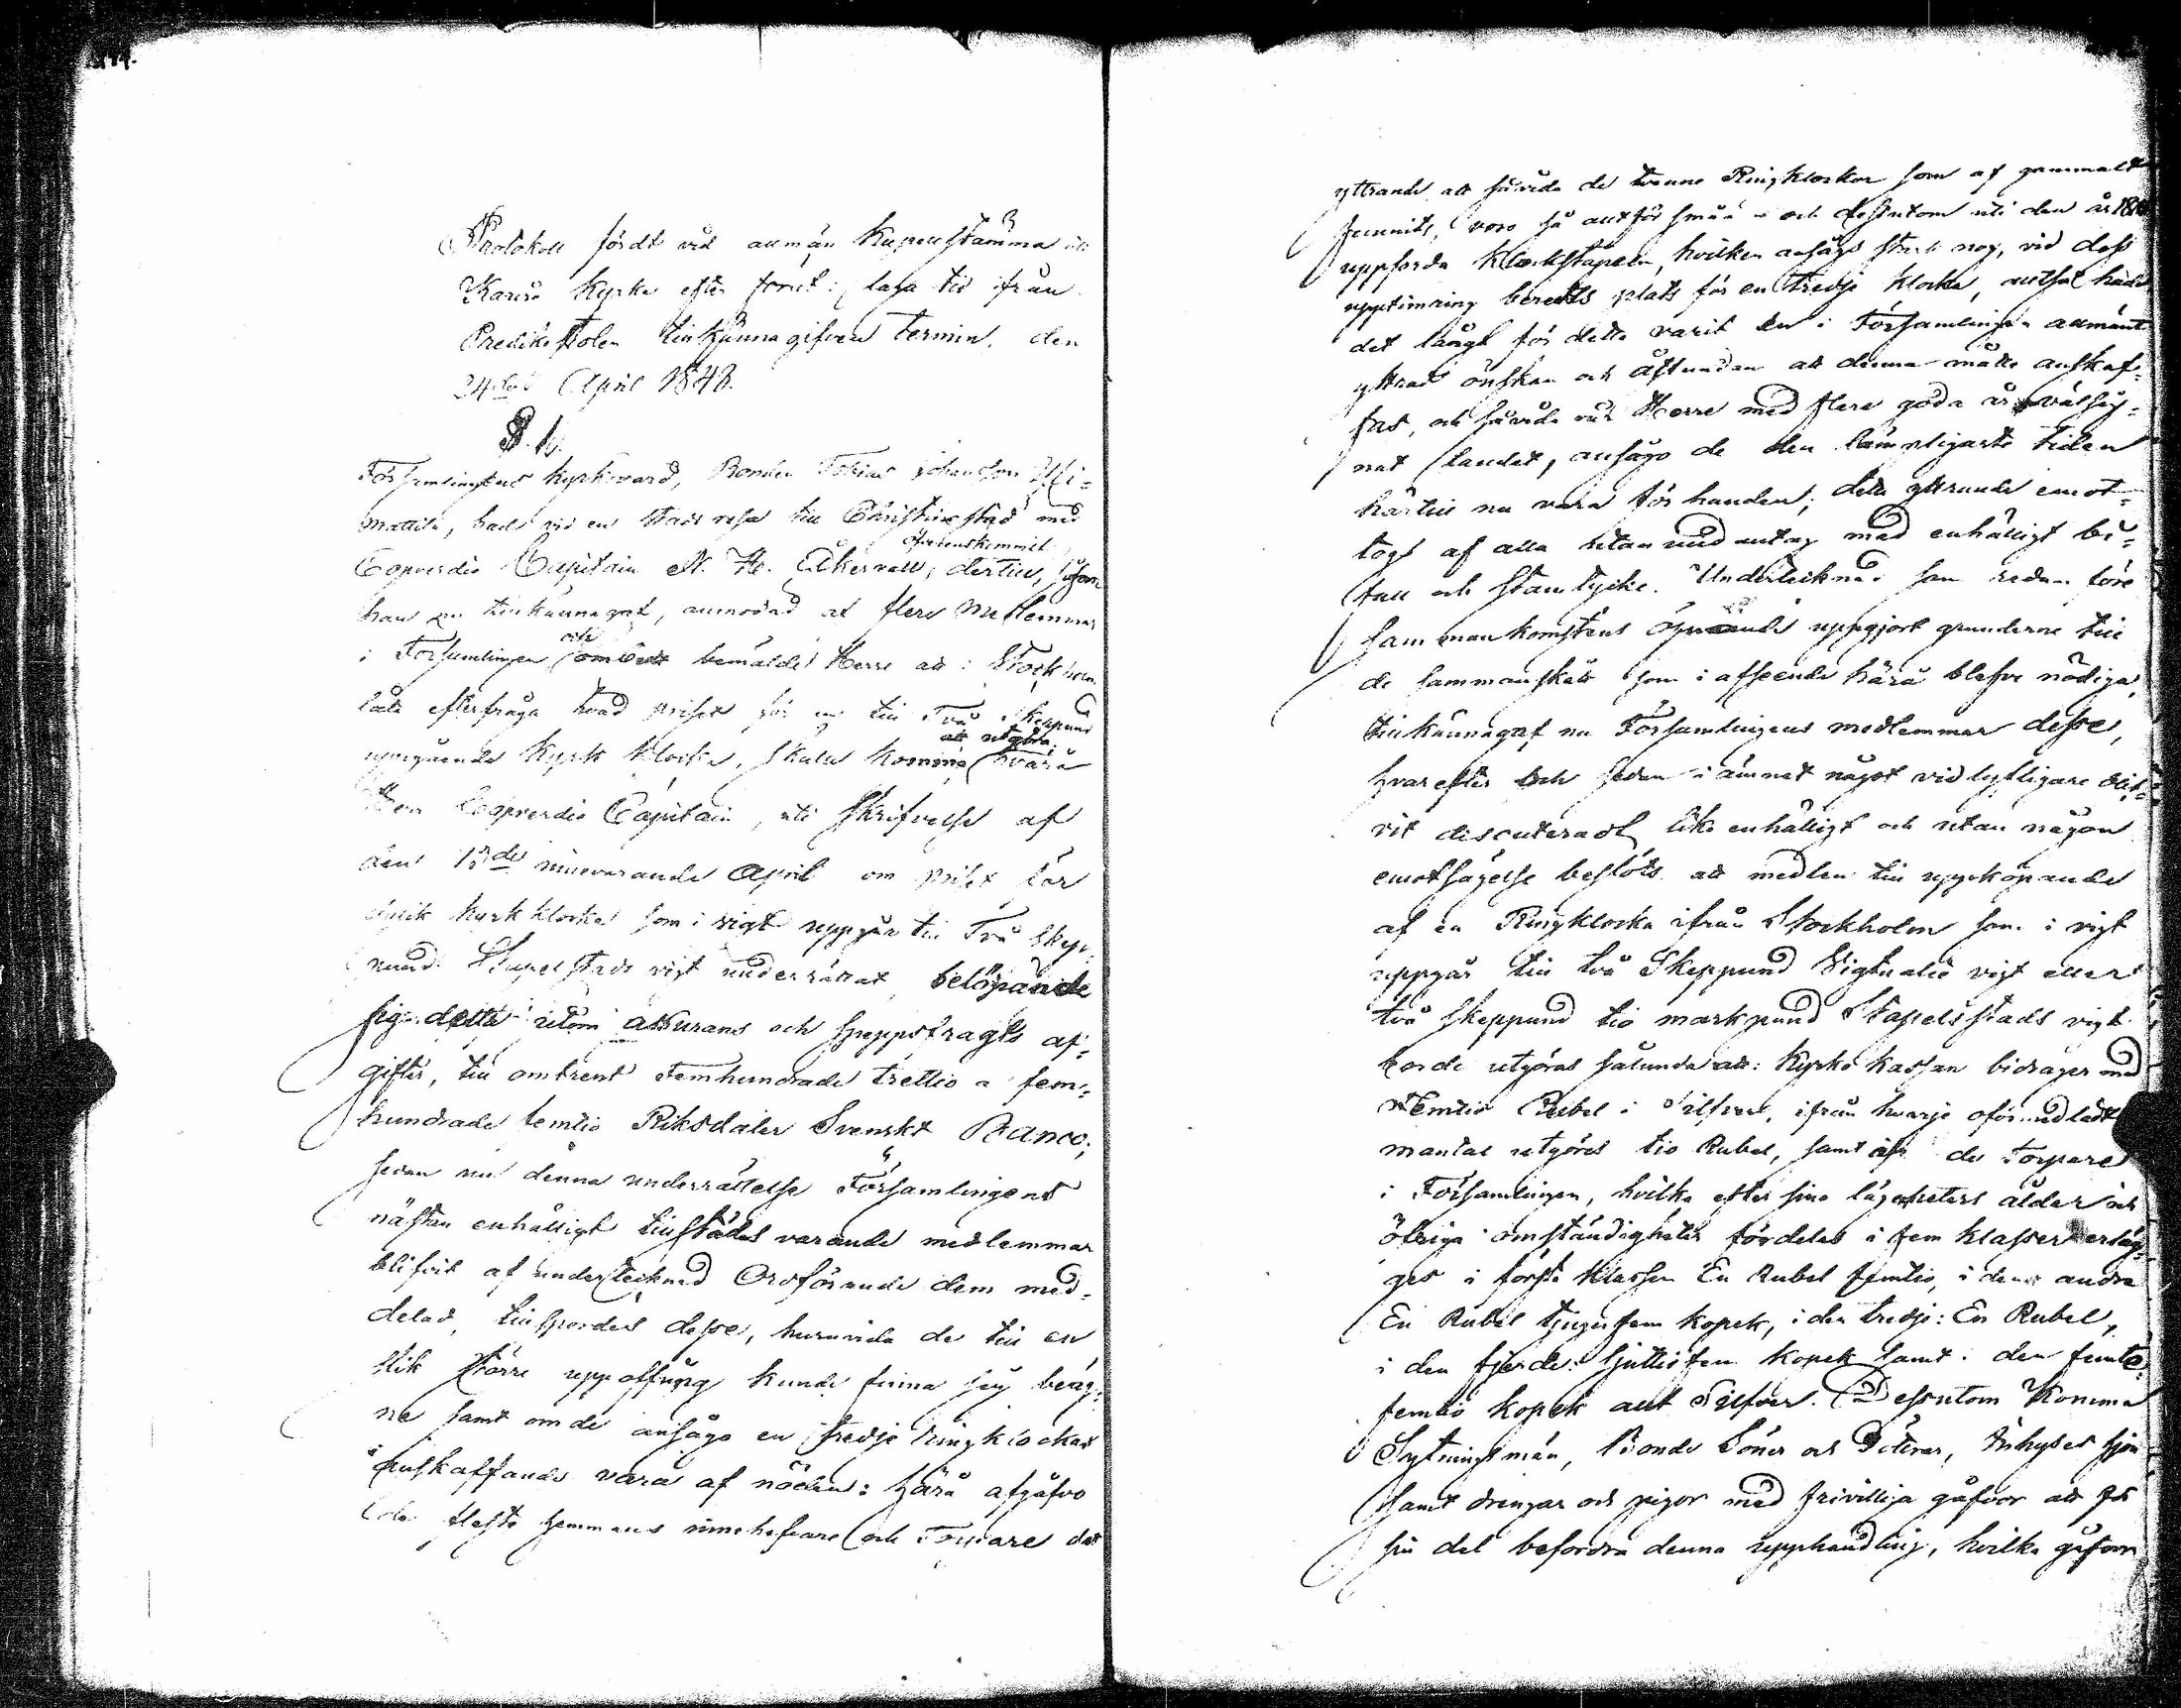 Protokoll fördt vid allmän Kapellstämma uti
Karvia Kyrka efter förut i laga tid ifrån
Predikstolen tillkännagifven termin, den
24de April 1848.
§. 1.
Församlingens kyrkovärd, Bonden Tobias Johansson
mattila, hade vid en stads resa till Christinæstad med
Coopverdie Capitain A. H. Åkervall, dertill, såsom
öfverenskommit
han nu tillkännagaf, anmodad af flere Medlemmar
i Församlingen ombedt bemälde Herre att i Stockholm
och
låta efterfråga hvad priset för en till Två Skeppund
uppgående Kyrk klocka, skulle komma hvarå
att utgöra,
Herr Coopverdie Capitain, uti skrifvelse af
den nuvarande April om priset för
dylik kyrkklocka som i vigt uppgår till Två Skep-
pund Stapelstads vigt underrättat, belöpande
sig detta utom assurans och skeppsfragts af-
gifter, till omtrent Femhundrade trettio a fem-
hundrade femtio Riksdaler Svenskt Banco;
sedan nu denna underrättelse Församlingens
nästan enhälligt tillstädes varande medlemmar
blifvit af undertecknad Ordförande dem med-
delad, tillspordes desse, huruvida de till en
slik större uppoffring kunde finna sig benäg-
ne samt om de ansågo en tredje ringklockas
anskaffande vara af nöden: härå afgåfvo
de fleste hemmans innehafvare och Torpare det
yttrande att såvida de tvenne Ringklockor som af gammalt
funnits, voro så alltför små och dessutom uti den år
uppförda Klockstapeln, hvilken ansågs stark nog, vid dess
upptimring beredts plats för en tredje klocka, alltså hade
det längt för detta varit en i Församlingen allmänt
yttrad önskan och åstundan att denna måtte anskaf-
fas, och såvida vår Herre med flere goda år välsig-
nat landet, ansågo de den lämpligaste tiden
härtill nu vara för handen; detta yttrande emot-
togs af alla utan undantag med enhälligt bi-
fall och samtycke. Undertecknad som redan före
sammankomstens öppnande uppgjort grunderne till
de sammanskott som i afseende härå blefve nödiga,
tillkännagaf nu Församlingens medlemmar desse,
hvarefter och sedan i ämnet något vidlyftigare blif-
vit discuteradt, lika enhälligt och utan någon
emotsägelse beslöts att medlen till uppköpande
af en Ringklocka ifrån Stockholm som i vigt
uppgår till två Skeppund Victualie vigt eller
två Skeppund tio markpund Stapelstads vigt
borde utgöras sålunda att: Kyrko kassan bidrager med
Femtio Rubel i Silfver, ifrån hvarje oförmedladt
mantal utgöres tio Rubel, samt af de Torpare
i Församlingen, hvilka efter sine lägenheters ålder och
öfriga omständigheter fördelas i fem klasser erläg-
ges i första klassen En Rubel femtio, i den andra
En Rubel tjugufem kopek, i den tredje: En Rubel,
i den fjerde: sjuttiofem kopek samt i den femte
femtio kopek allt Silfver. Dessutom komma
Sytningsmän, Bonde Söner och Döttrar, Inhyses hjon
samt drengar och pigor med frivilliga gåfvor att för
sin del befordra denna upphandling, hvilka gåfvor